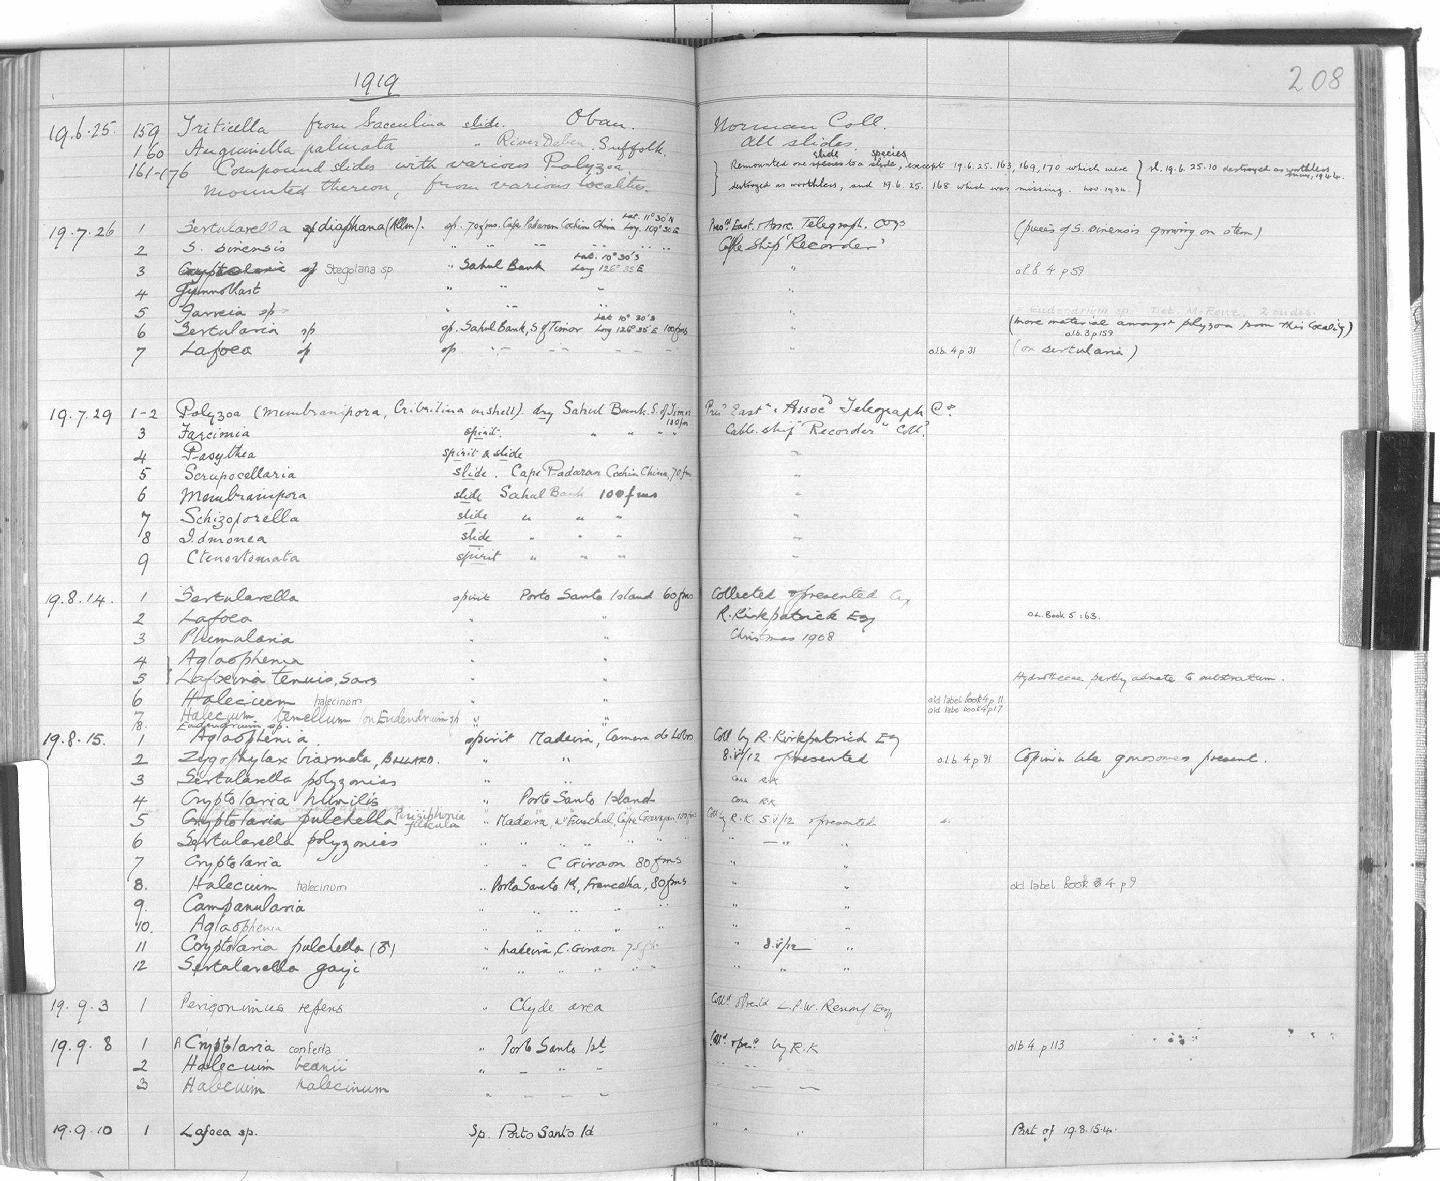 1919
208
19.6.25. 159 Triticella from Sacculina slide. Oban. Norman Coll.
160 Anguinella palmata " River Deben, Suffolk. All slides.
161-176 Compound slides with various Polyzoa,
mounted thereon, from various localities.
slide species
Remounted one species to a slide, except 19.6.25. 163, 169, 170 which were
destroyed as worthless, and 19.6.25. 168 which was missing. Nov. 1934.
sl. 19.6.25.10 destroyed as worthless
19.7.26 1 Sertularella diaphana (Allm). sp. 70 fms. Cape Padaran Cochin China Lat. 11° 30' N Long. 109° 30 E Pres. East. Assoc. Telegraph. Coy (pieces of S. sinensis growing on stem)
2 S. sinensis " " " " " " Cable Ship 'Recorder'
3 Cryptolaria sp Stegolaria sp " Sahul Bank Lat. 10° 30' S Long 126° 35 E " olb 4 p 59
4 Gymnoblast " " " "
5 Garveia sp " " " "
6 Sertularia sp sp. Sahul Bank, S of Timor Lat 10° 30' S Long 126° 35' E 100 fms " (more material amongst polyzoa from this locality)
olb. 3 p 159
7 Lafoea sp sp. " " " olb. 4 p 31 (on sertularia)
19.7.29 1-2 Polyzoa (Membranipora, Cribrilina on shell). dry Sahul Bank. S. of Timor 100 fm Pres. East. Assoc. Telegraph Co.
3 Farcimia spirit. " " " " Cable. ship "Recorder" Coll.
4 Pasythea spirit & slide "
5 Scrupocellaria slide. Cape Padaran Cochin China, 70 fm "
6 Membranipora slide Sahul Bank 100 fms "
7 Schizoporella slide " " " "
8 Idmonea slide " " " "
9 Ctenostomata spirit " " " "
19.8.14. 1 Sertularella spirit Porto Santo Island 60 fms Collected & presented by
2 Lafoea " " R. Kirkpatrick Esq OL. Book 5 : 63.
3 Plumularia " " Christmas 1908
4 Aglaophenia " "
5 Lafoeina tenuis, Sars " " Hydrothecae partly adnate to substratum.
6 Halecium halecinum " " old label book 4 p 11
7 Halecium tenellum (on Eudendrium sp " " old label book 4 p 17
8. Eudendrium sp. "
19.8.15. 1 Aglaophenia spirit Madeira, Camera de Lobos Coll by R. Kirkpatrick Esq
2 Zygophylax biarmata, BILLARD. " " 8.vi/12 & presented olb. 4 p 91 Coppinia like gonosomes present.
3 Sertularella polyzonias " " Coll RK
4 Cryptolaria humilis " Porto Santo Island Coll RK
5 Cryptolaria pulchella Perisiphonia filicula " Madeira, nr Funchal, Cape Garajau, 100 fms Coll by R.K. 5.vi/12 & presented
6 Sertularella polyzonias " " " " " " "
7 Cryptolaria " " C Giraon 80 fms " "
8. Halecium halecinum " Porto Santo Id, 80 fms " " old label Book 3 4 p 9
9. Campanularia " " " " " "
10. Aglaophenia " " " " " "
11 Cryptolaria pulchella (?) " Madeira, C. Giraon 75 fms " 8.vi/12 "
12 Sertularella gayi " " " " " " " "
19.9.3 1 Perigonimus repens " Clyde area Colld & Presd L.P.W. Renouf Esq
19.9.8 1 A Cryptolaria conferta " Porto Santo Id. Colld & pres. by R.K olb 4 p 113
2 Halecium beanii " " " "
3 Halecium halecinum " " " " " "
19.9.10 1 Lafoea sp. Sp. Porto Santo Id " " " Part of 19.8.15.4.